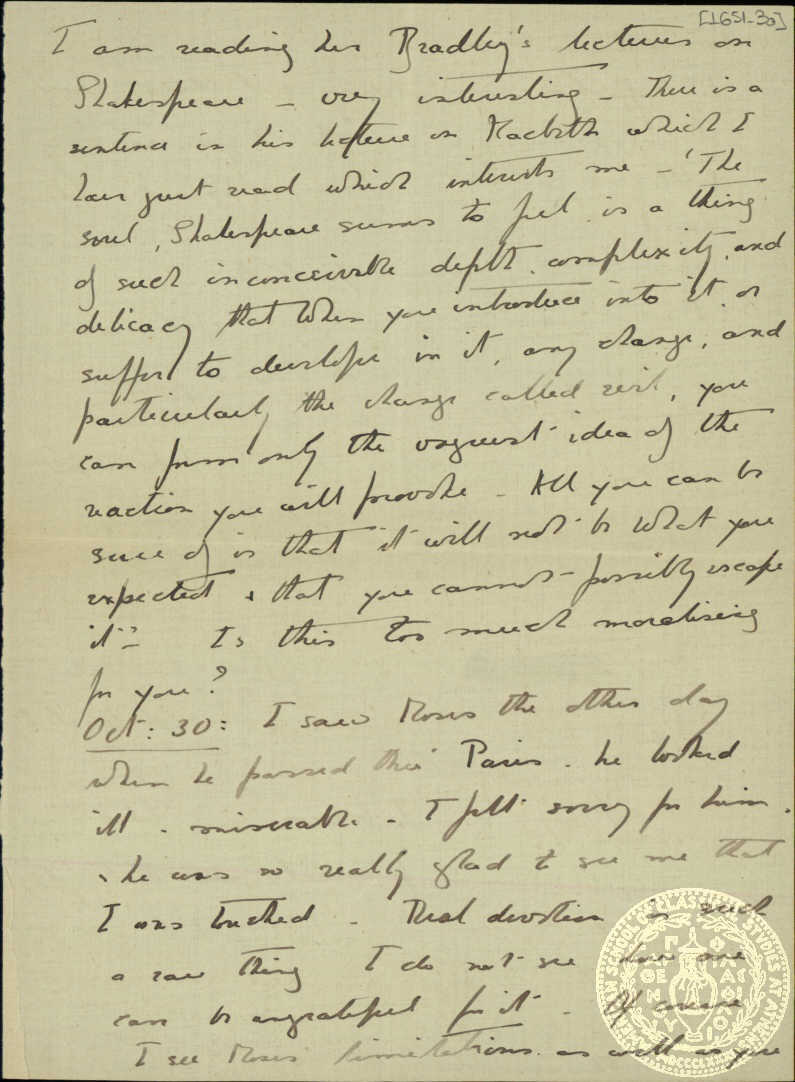 [1651-30]
I am reading her Bradley's lectures on
Shakespeare – very interesting – There is a
sentence in his lecture on Macbeth which I
have just read which interests me – 'The
soul, Shakespeare seems to feel, is a thing
of such inconceivable depth, complexity, and
delicacy that when you introduce into it, or
suffer to develope in it, any change, and
particularly the change called evil, you
can form only the vaguest idea of the
reaction you will provoke – All you can be
sure of is that it will not be what you
expected, & that you cannot possibly escape
it" – Is this too much moralising
for you?
Oct: 30: I saw Moses the other day
when he passed thro' Paris. he looked
ill & miserable – I felt sorry for him.
& he was so really glad to see me that
I was touched – Real devotion is such
a rare thing I do not see how one
can be ungrateful for it – Of course
I see Moses' limitations as well as you
AN SCHOOL OF CLASSICAL STUDIES AT ATHENS